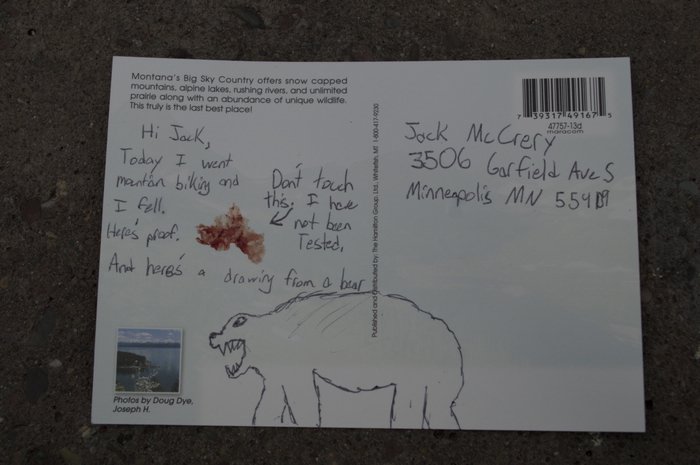 Montana's Big Sky Country offers snow capped
mountains, alpine lakes, rushing rivers, and unlimited
prairie along with an abundance of unique wildlife.
This truly is the last best place!
Hi Jack,
Today I went
mountan biking and
I fell.
Here's proof.
Don't touch
this; I have
not been
Tested,
And here's a drawing from a bear
Photos by Doug Dye,
Joseph H.
Published and Distributed by: The Hamilton Group, Ltd., Whitefish, MT 1-800-417-9330
7 39317 49167 5
47757-13d
maracom
Jack McCrery
3506 Garfield Ave S
Minneapolis MN